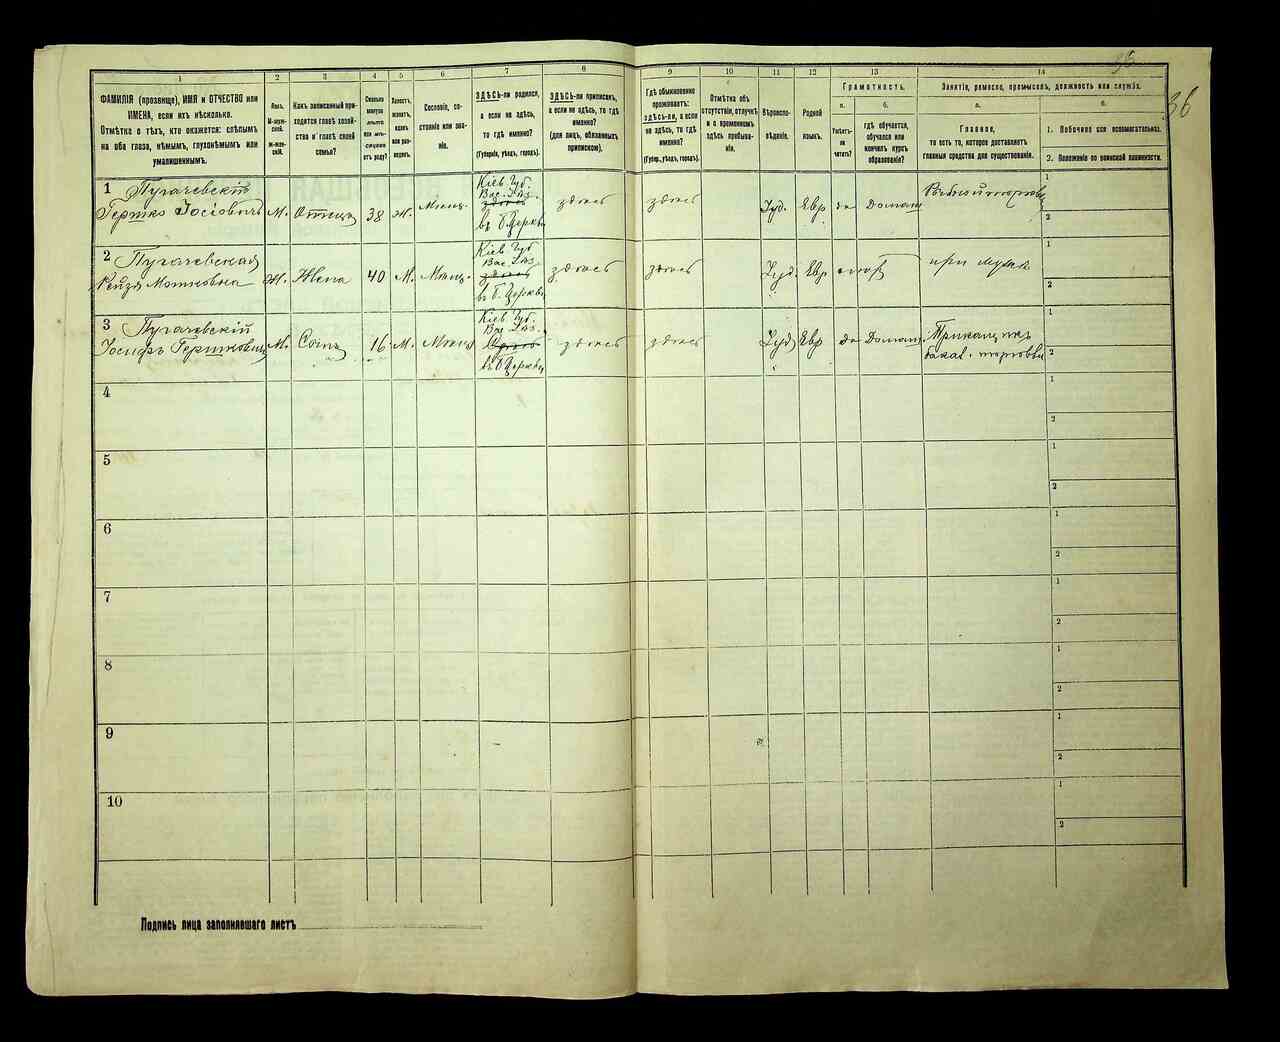 36
36
1
2
3
4
5
6
7
8
9
10
11
12
13
14
ФАМИЛІЯ (прозвище), ИМЯ и ОТЧЕСТВО или
ИМЕНА, если ихъ нѣсколько.
Отмѣтка о тѣхъ, кто окажется: слѣпымъ
на оба глаза, нѣмымъ, глухонѣмымъ или
умалишеннымъ.
Полъ.
М-муж-
ской.
Ж-жен-
скій.
Какъ записанный при-
ходится главѣ хозяй-
ства и главѣ своей
семьи?
Сколько
минуло
лѣтъ
или мѣ-
сяцевъ
отъ роду?
Холостъ,
женатъ,
вдовъ
или раз-
веденъ.
Сословіе, со-
стояніе или зва-
ніе.
ЗДѢСЬ-ли родился,
а если не здѣсь,
то гдѣ именно?
(Губернія, уѣздъ, городъ).
ЗДѢСЬ-ли приписанъ,
а если не здѣсь, то гдѣ
именно?
(для лицъ, обязанныхъ
припискою).
Гдѣ обыкновенно
проживаетъ:
здѣсь-ли, а если
не здѣсь, то гдѣ
именно?
(Губер., уѣздъ, городъ).
Отмѣтка объ
отсутствіи, отлучкѣ
и о временномъ
здѣсь пребыва-
ніи.
Вѣроиспо-
вѣданіе.
Родной
языкъ.
Грамотность.
а.
б.
Умѣетъ-
ли
читать?
гдѣ обучается,
обучался или
кончилъ курсъ
образованія?
Занятіе, ремесло, промыселъ, должность или служба.
а.
б.
Главное,
то есть то, которое доставляетъ
главныя средства для существованія.
1. Побочное или вспомогательное.
2. Положеніе по воинской повинности.
1 Пугачевскій
Гершко Іосіовичъ М. Отецъ 38 Ж. Мѣщ.
Кіев Губ.
Вас. Уѣз.
здѣсь
въ Б. Церкви
здѣсь здѣсь Іуд. Евр да Домаш
1
2
2 Пугачевская
Рейзя Мошковна Ж. Жена 40 М. Мѣщ.
Кіев Губ
Вас. Уѣз.
здѣсь
въ Б. Церкви
здѣсь здѣсь Іуд. Евр при мужѣ
1
2
3 Пугачевскій
Іосифъ Гершковичъ М. Сынъ 16 М. Мѣщ
Кіев Губ.
Вас. Уѣз.
въ Б Церкви
здѣсь здѣсь Іуд Евр да Домаш Прикащикъ
бакал. торговли
1
2
4
1
2
5
1
2
6
1
2
7
1
2
8
1
2
9
1
2
10
1
2
Подпись лица заполнявшаго листъ